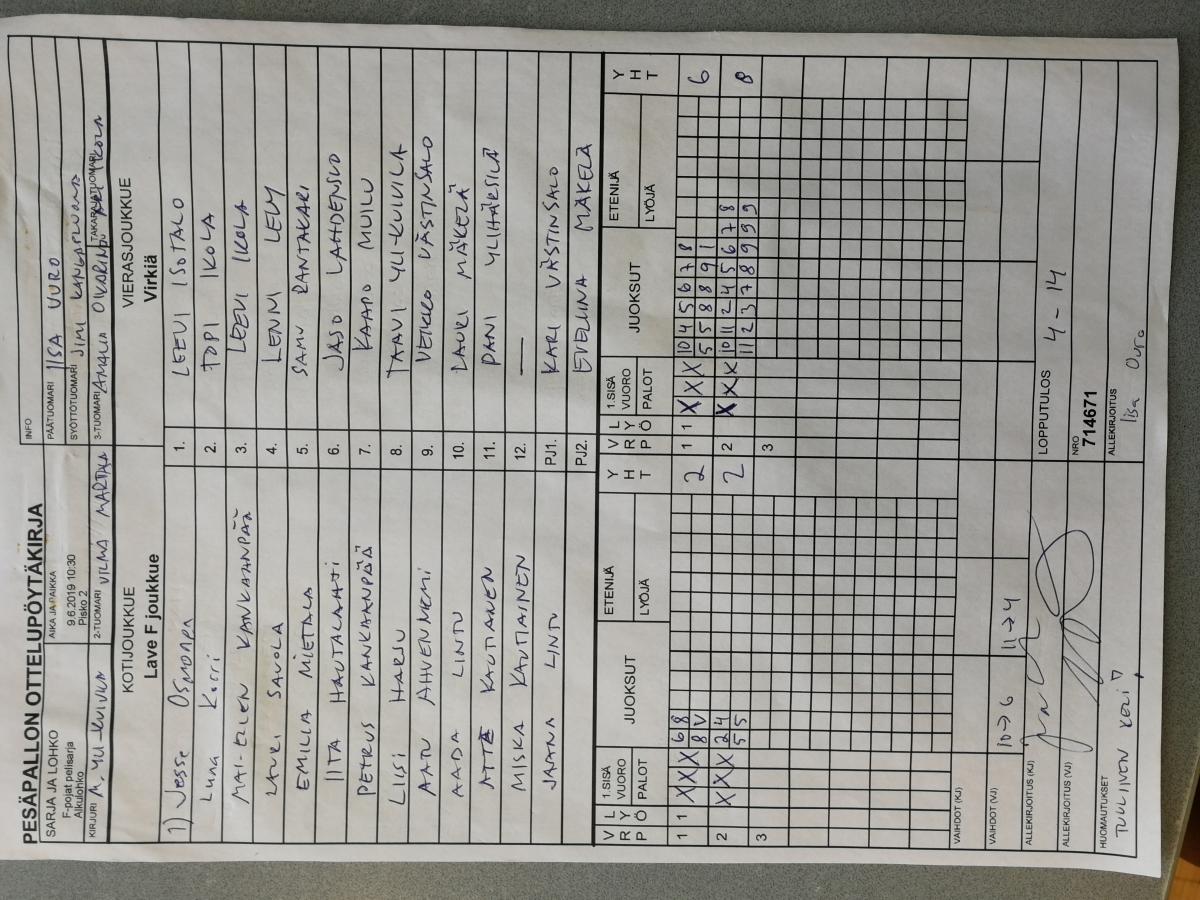 PESÄPALLON OTTELUPÖYTÄKIRJA
INFO
SARJA JA LOHKO
F-pojat pelisarja
Alkulohko
AIKA JA PAIKKA
9.6.2019 10:30
Pisko 2
PÄÄTUOMARI IISA OURO
SYÖTTÖTUOMARI
KIRJURI A. YLI-KUIVILA
2-TUOMARI VILMA
3-TUOMARI
TAKARAJATUOMARI
KOTIJOUKKUE
Lave F joukkue
VIERASJOUKKUE
Virkiä
1) Jesse 1. LEEVI ISOTALO
Luna Korri 2. TOPI IKOLA
MAI-ELLEN KANKAANPÄÄ 3. LEEVI IKOLA
LAURI SAVOLA 4. LENNI LEVY
EMILIA MIETALA 5. SAMU RANTAKARI
IITA HAUTALAHTI 6. JASO LAHDENSUO
PETRUS KANKAANPÄÄ 7. KAAPO MUILU
LIISI HARJU 8. TAAVI YLI-KUIVILA
AATU AHVENNIEMI 9. VEIKKO VÄSTINSALO
AADA LINTU 10. LAURI MÄKELÄ
ATTE KAUTIANEN 11. PANI YLIHÄRSILÄ
MISKA KAUTIAINEN 12. —
JAANA LINTU PJ1. KARI VÄSTINSALO
PJ2. EVELIINA MÄKELÄ
V R P L Y Ö 1.SISÄ VUORO PALOT JUOKSUT ETENIJÄ LYÖJÄ Y H T
V R P L Y Ö 1.SISÄ VUORO PALOT JUOKSUT ETENIJÄ LYÖJÄ Y H T
1 1 X X X 6 8 2 1 1 X X X 10 4 5 6 7 8 6
8 V 5 5 8 8 9 1
2 X X X 2 4 2 2 X X X 10 11 2 4 5 6 7 8 8
5 5 11 2 3 7 8 9 9 9
3 3
VAIHDOT (KJ)
VAIHDOT (VJ) 10→6 11→4
ALLEKIRJOITUS (KJ)
LOPPUTULOS 4 - 14
ALLEKIRJOITUS (VJ)
NRO
714671
HUOMAUTUKSET
ALLEKIRJOITUS
Iisa Ouro